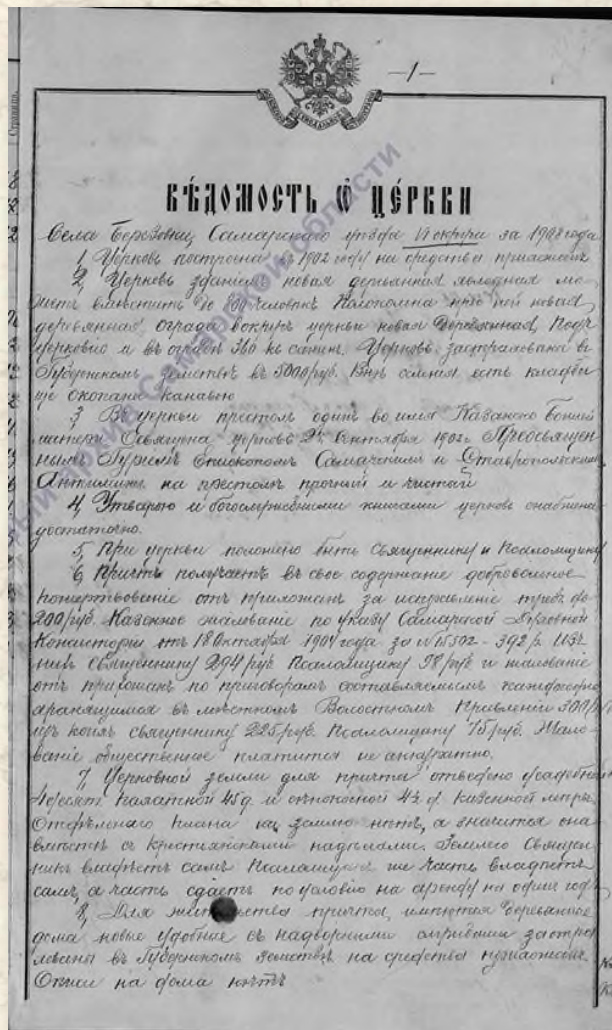 —1—
ВѢДОМОСТЬ Ѡ ЦЕРКВИ
Села Березовки Самарского уѣзда округа за 1908 года
1, Церковь построена въ 1902 году на средства прихожанъ
2, Церковь зданіемъ новая деревянная мо-
жетъ вмѣстить до 800 человѣкъ Колокольня при ней новая
деревянная ограда вокругъ церкви новая деревянная, Подъ
церковію и въ оградѣ 360 кв сажен. Церковь застрахована въ
Губернскомъ Земствѣ въ 5000 руб. Внѣ селенія есть кладби-
ще окопано канавою
3, Въ церкви престолъ одинъ во имя Казанско Божіей
матери Священа церковь Сентября 1902 г. Преосвящен-
нымъ Гуріемъ Епископомъ Самарскимъ и Ставропольскимъ
Антиминсъ на престолѣ прочный и чистый
4, Утварью и богослужебными книгами церковь снабжена
достаточно.
5, При церкви положено быть Священнику и Псаломщику
6, Причтъ получаетъ въ свое содержаніе добровольное
пожертвованіе отъ прихожан за исправленіе требъ до
200 руб. Казенное жалованіе по указу Самарской Духовной
Консисторіи отъ 18 Октября 1904 года за № 15502 - 392 р. Изъ
нихъ священнику 294 руб Псаломщику 98 руб и жалованіе
отъ прихожан по приговорамъ составляемымъ ежегодно
хранящимся въ мѣстномъ Волостномъ Правленіи 300 руб
изъ коихъ священнику 225 руб. Псаломщику 75 руб. Жало-
ваніе общественное платится не аккуратно.
7, Церковной земли для причта отведено усадебной
десят. пахатной 45 д. и сѣнокосной 4½ д. казенной мѣры.
Отдѣльнаго плана на землю нѣтъ, а значится она
вмѣстѣ съ крестьянскими надѣлами. Землею Священ-
никъ владѣетъ самъ Псаломщикъ же часть владѣетъ
самъ, а часть сдаетъ по условію на аренду на одинъ годъ
8, Для жительства причта, имѣются деревянные
дома новые удобные съ надворными застра-
хованы въ Губернскомъ Земствѣ на средства прихожанъ.
Описи на дома нѣтъ
Самарской области